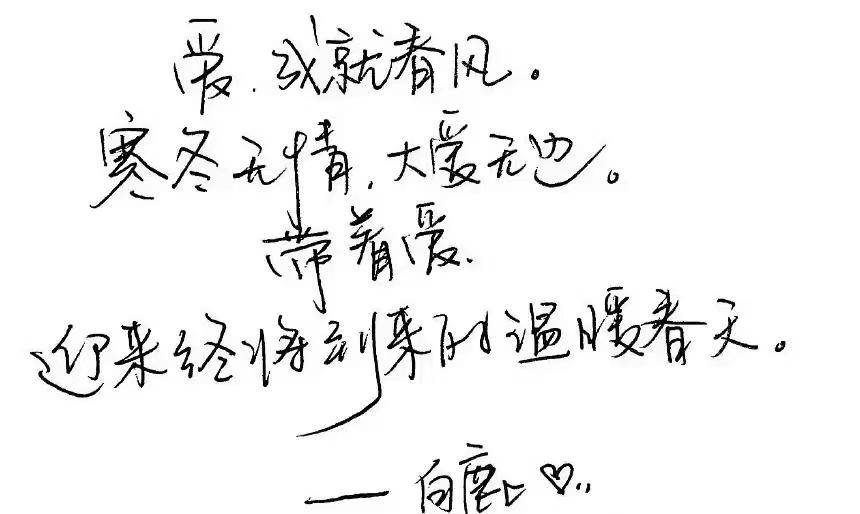 爱,或就春风。
寒冬无情,大爱无边。
带着爱.
迎来终将到来的温暖春天。
——白鹿♡..